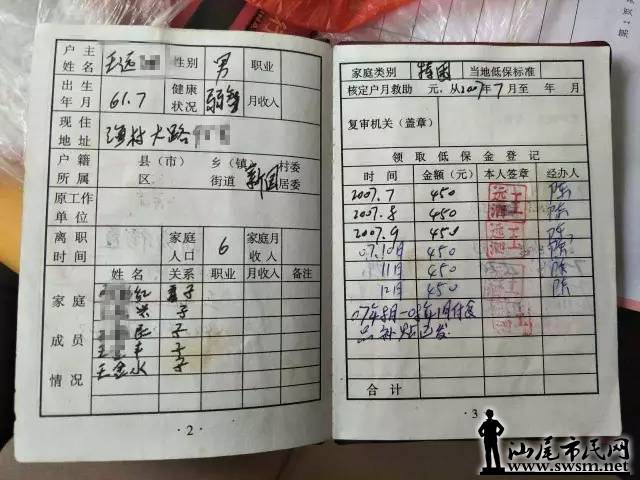 户主姓名 王远 性别 男 职业
出生年月 61.7 健康状况 弱智 月收入
现住地址 渔村大路
户籍所属 县(市)区 乡(镇)街道 新园 村委居委
原工作单位
离职时间 家庭人口 6 家庭月收入
家庭成员情况
姓名 关系 职业 月收入 备注
红 妻子
兴 子
民 子
王 丰 子
王金水 子
· 2 ·
家庭类别 特困 当地低保标准
核定户月救助 元,从2007年7月至 年 月
复审机关(盖章)
领取低保金登记
时间 金额(元) 本人签章 经办人
2007.7 450 陈
2007.8 450 陈
2007.9 450 陈
07.10月 450 陈
11月 450 陈
12月 450 陈
合计
· 3 ·
第1页
汕尾市民网
www.swsm.net